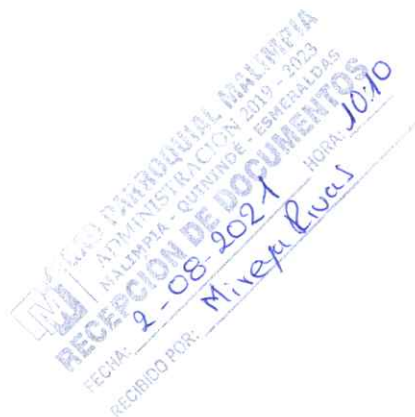 PARROQUIAL MALIMPIA
ADMINISTRACION 2019 - 2023
MALIMPIA - QUININDE - ESMERALDAS
RECEPCION DE DOCUMENTOS
FECHA: 2-08-2021 HORA: 10:10
RECIBIDO POR: Mireya Rivas